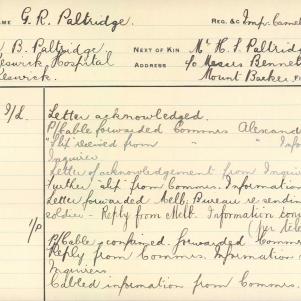 NAME G. R. Paltridge REG. &c Imp. Camel
B. Paltridge NEXT OF KIN Mr H. S. Paltrid
Keswick, Hospital ADDRESS c/o Messrs Bennett
Keswick. Mount Barker
I/L. Letter acknowledged.
P/Cable forwarded Commrs Alexand
Slip received from " Infor
Inquirer
Letter of acknowledgement from Inquir
Further slip from Commrs. Information
Letter forwarded Melb. Bureau re sending
soldier - Reply from Melb. Information con
(per tele
1/P P/Cable confirmed. forwarded Commr
Reply from Commrs. Information
Inquirers
Cabled information from Commrs.